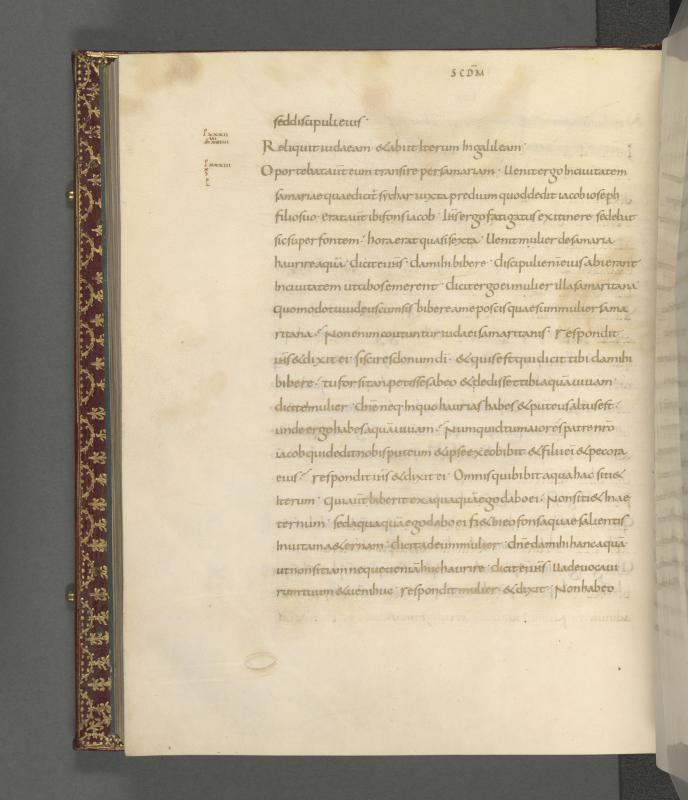 SCDM̄
sed discipuli eius ·
Reliquit iudaeam · & abiit Iterum In galileam ·
Oportebat aut̄ eum transire per samariam · Uenit ergo In ciuitatem
samariae quae dicit̄ sychar iuxta predium quod dedit iacob ioseph
filio suo · erat aut̄ ibi fons iacob · Ih̄s ergo fatigatus ex itinere sedebat
sic super fontem · hora erat quasi sexta · Uenit mulier de samaria
haurire aquā · dicit ei ih̄s · da mihi bibere · discipuli enī eius abierant
In ciuitatem ut cibos emerent · dicit ergo ei mulier illa samaritana
quomodo tu iudeus cum sis bibere a me poscis quae sum mulier sama
ritana · Non enim coutuntur iudaei samaritanis · respondit
ih̄s & dixit ei · si scires donum dī · & quis est qui dicit tibi da mihi
bibere · tu forsitan petisses ab eo & dedisset tibi aquā uiuam ·
dicit ei mulier · dn̄e neq· In quo haurias habes & puteus altus est ·
unde ergo habes aquā uiuam · Numquid tu maior es patre nr̄o
iacob qui dedit nobis puteum & ipse ex eo bibit & filii eī & pecora
eius · respondit ih̄s & dixit ei · Omnis qui bibit aqua hac siti&
Iterum · Qui aut̄ biberit ex aqua quā ego dabo ei · Non siti& In ae
ternum · sed aqua quā ego dabo ei fi& In eo fons aquae salientis
In uitam a&ernam · dicit ad eum mulier · dn̄e da mihi hanc aquā
ut non sitiam neque ueniā huc haurire · dicit ei ih̄s · Uade uoca ui
rum tuum & ueni huc · respondit mulier & dixit · Non habeo